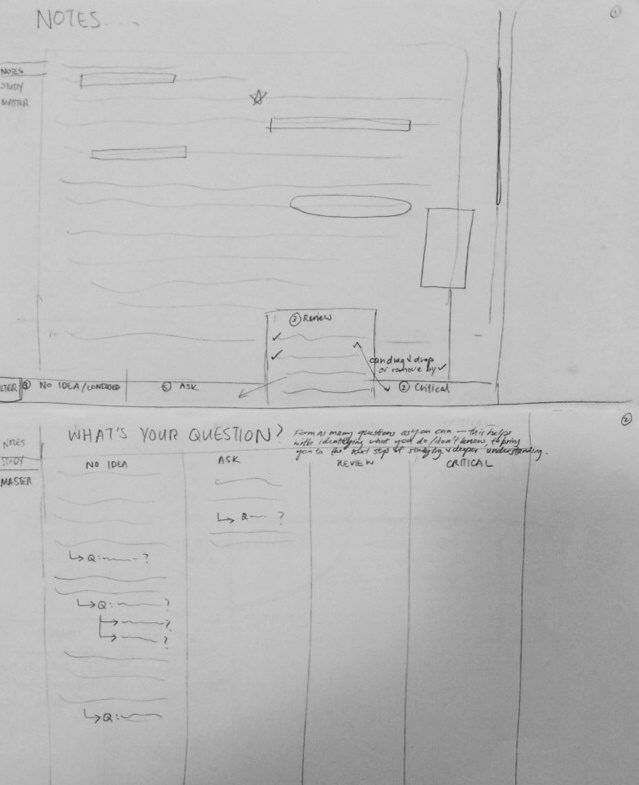 NOTES....
①
NOTES
STUDY
MASTER
② Review
can drag & drop
or remove by ✓
LTER ④ NO IDEA/CONFUSED ③ ASK ② Critical
②
NOTES
STUDY
MASTER
WHAT'S YOUR QUESTION?
Form as many questions as you can — this helps
with identifying what you do/don't know, to bring
you to the next step of studying & deeper understanding.
NO IDEA ASK REVIEW CRITICAL
Q: ?
Q: ?
?
?
Q: ?
Q ?